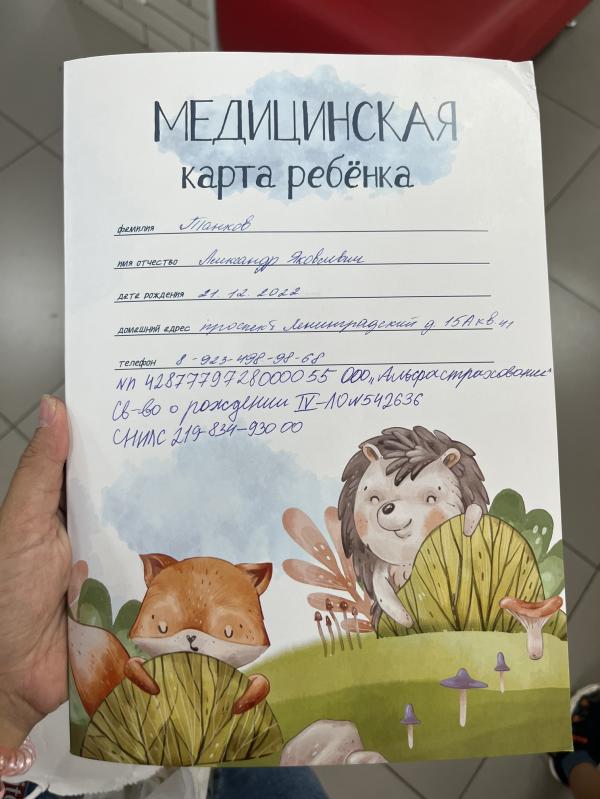 МЕДИЦИНСКАЯ
карта ребёнка
фамилия Танков
имя отчество Александр Яковлевич
дата рождения 21.12.2022
домашний адрес проспект Ленинградский д. 15А кв. 41
телефон 8-923-498-98-68
№П 4287779728000055 ООО „Альфастрахование"
Св-во о рождении IV-ЛО №542636
СНИЛС 219-834-930 00